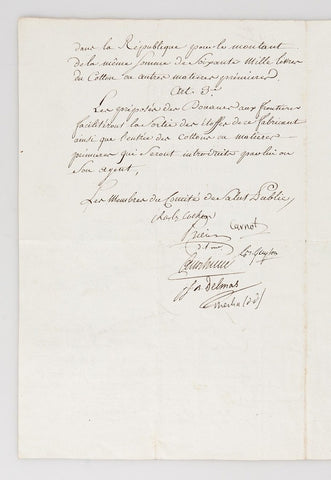 dans la République pour le montant
de la même somme de Soixante Mille livres
du Cotton ou autres matieres premieres
Art. 3.e
Les préposés des Douanes aux frontieres
faciliteront la Sortie des étoffes de ce fabricant
ainsi que l'entrée des cottons ou matieres
premieres qui seront introduites par lui ou
son agent.
Les Membres du Comité de Salut Public,
Charles Cochon
Carnot
L.B. Guyton
J f B Delmas
Merlin (d d)